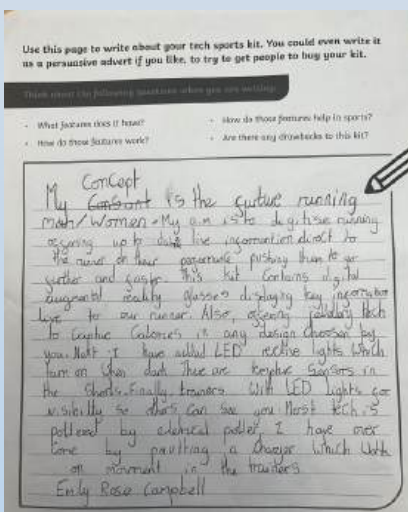 Use this page to write about your tech sports kit. You could even write it
as a persuasive advert if you like, to try to get people to buy your kit.
Think about the following questions when you are writing:
What features does it have?
How do those features work?
How do those features help in sports?
Are there any drawbacks to this kit?
Concept
My is the furture running
Men/Women. My aim is to digitise running
offering up to date live information direct to
the runner on their pushing them to go
further and faster. This kit contains digital
augmented reality glasses displaying key information
Live to our runner. Also, offering Tech
to Calories in any design choosen by
you. Next I have added LED lights which
turn on when dark. There are Sensors in
the Shorts. Finally, trainers With LED lights for
visibility so others Can See you. Most tech is
by I have over
Come by a Charger which Work
on movment in the trainers
Emily Rose Campbell